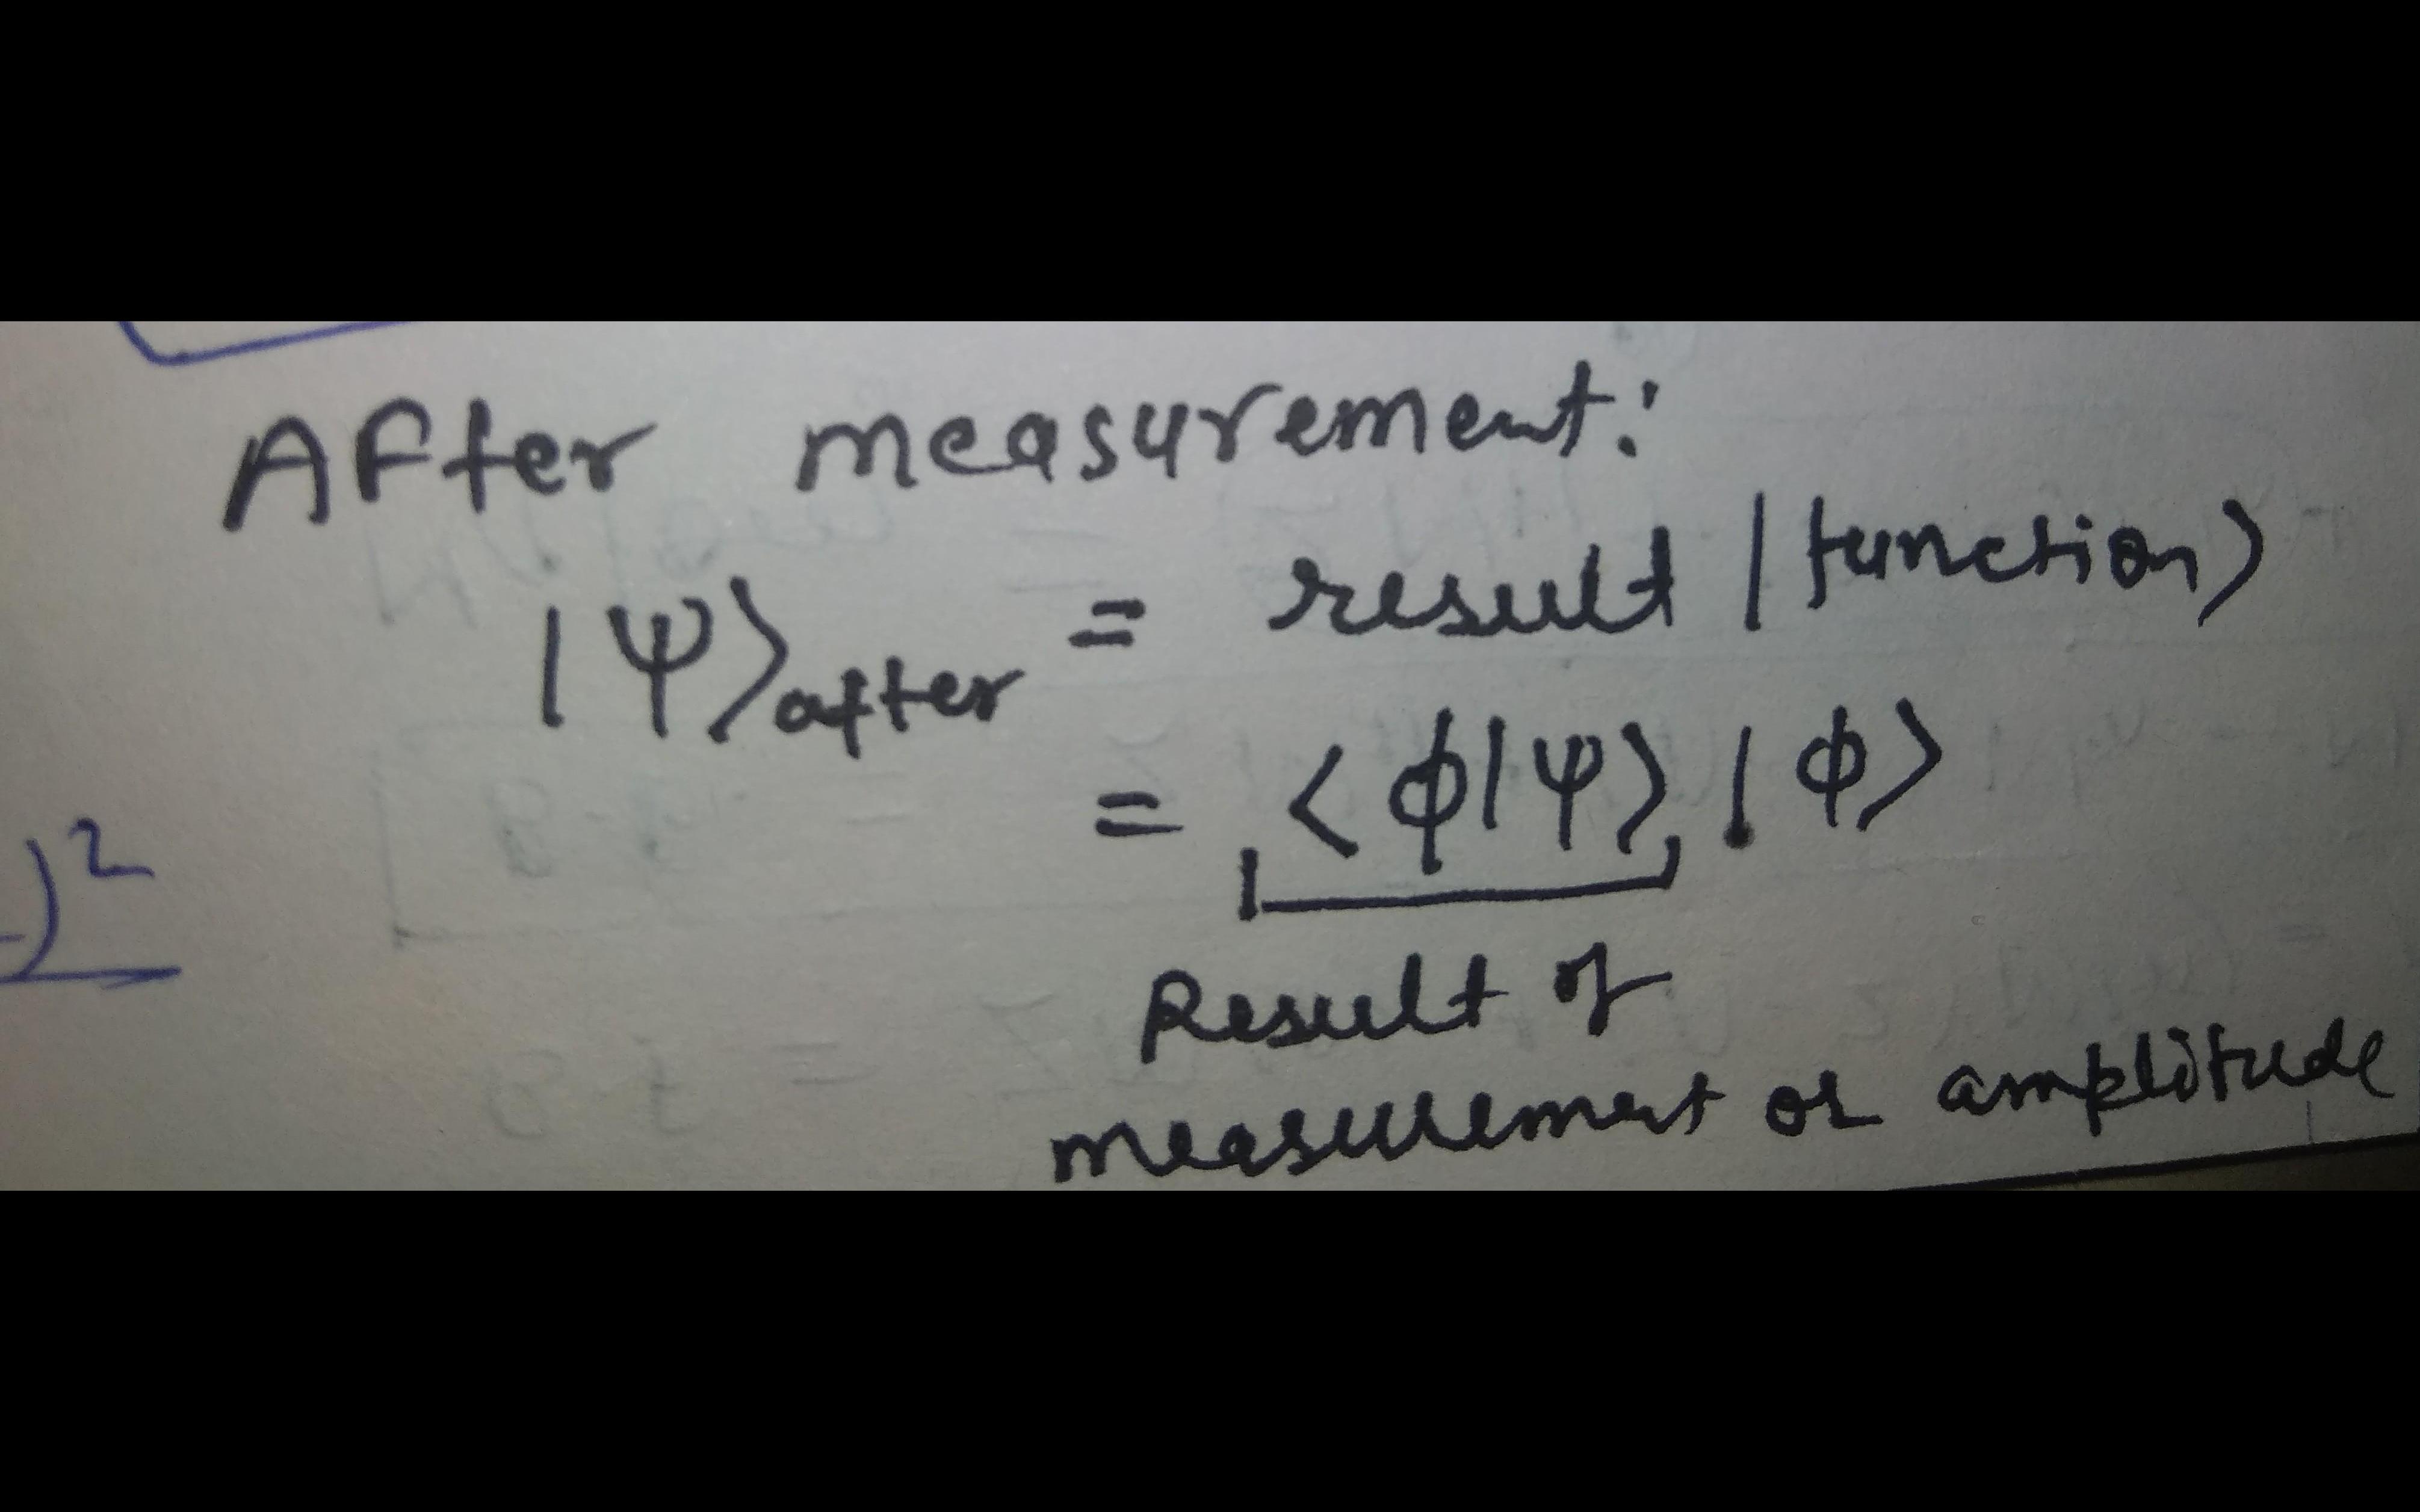 After measurement:
|ψ⟩after = result |function⟩
= ⟨ϕ|ψ⟩ |ϕ⟩
)²
Result of
measurement or amplitude